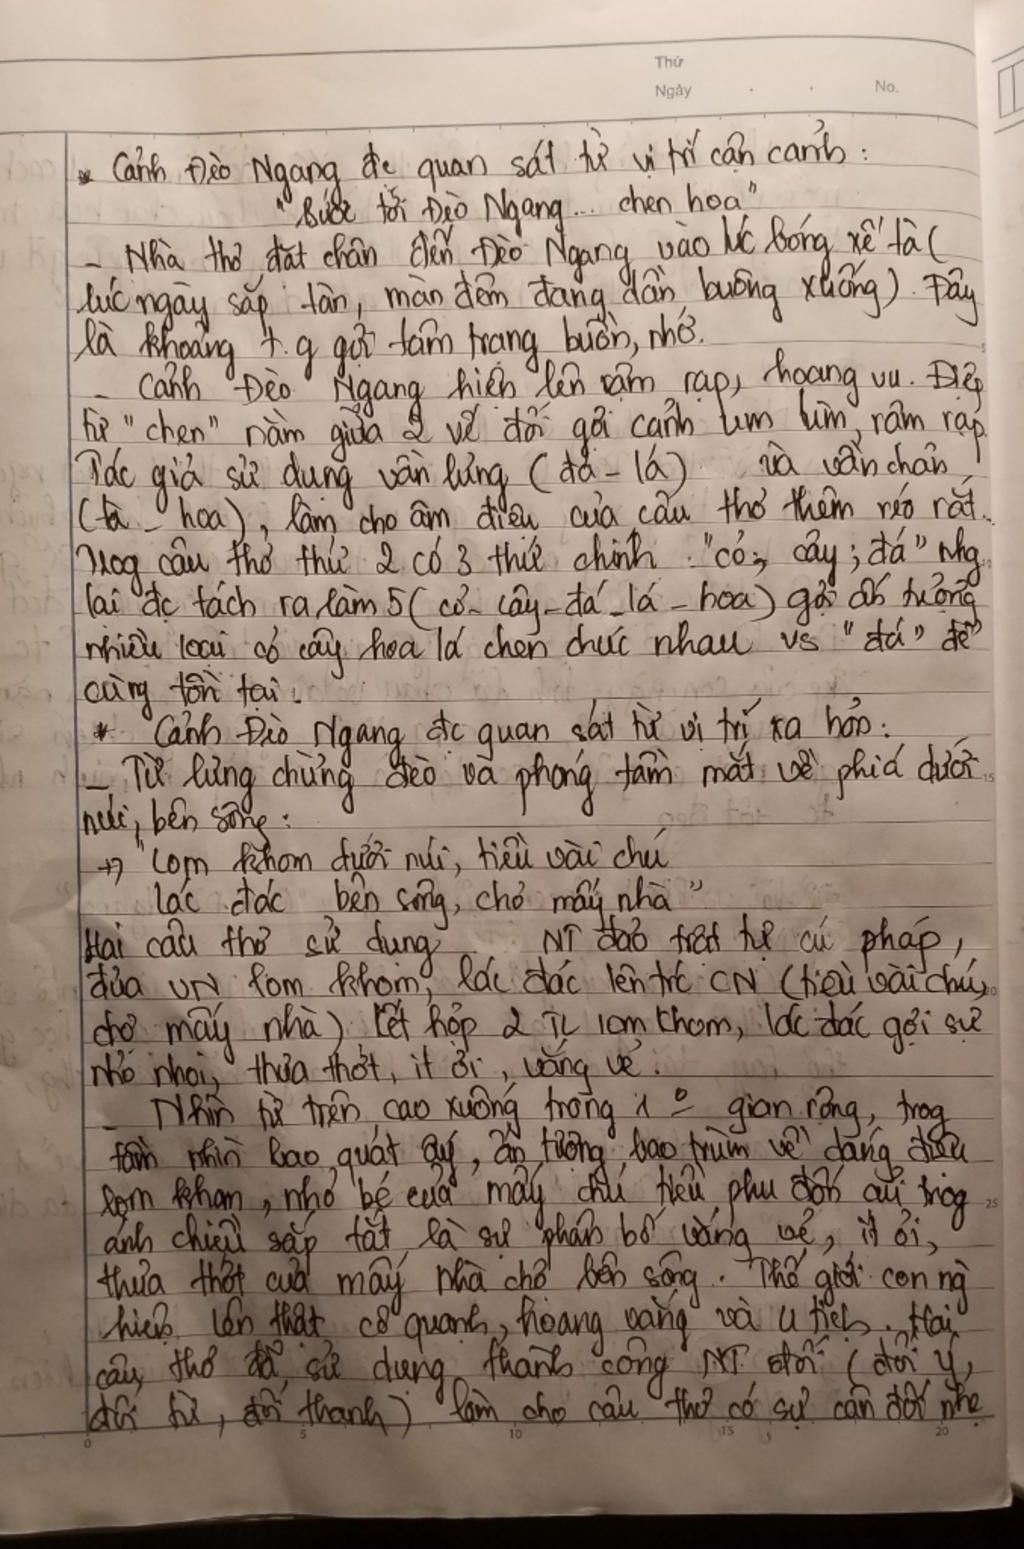 Thứ
Ngày . . No.
* Cảnh Đèo Ngang đc quan sát từ vị trí cận cảnh :
"Bước tới Đèo Ngang... chen hoa"
- Nhà thơ đặt chân đến Đèo Ngang vào lúc bóng xế tà (
lúc ngày sắp tàn, màn đêm đang dần buông xuống). Đây
là khoảng t.g gợi tâm trạng buồn, nhớ.
- Cảnh Đèo Ngang hiện lên rậm rạp, hoang vu. Điệp
từ "chen" nằm giữa 2 vế đối gợi cảnh um tùm, rậm rạp.
Tác giả sử dụng vần lưng (đá - lá) và vần chân
(tà - hoa), làm cho âm điệu của câu thơ thêm réo rắt.
Trog câu thơ thứ 2 có 3 thứ chính : "cỏ, cây; đá" nhg
lại đc tách ra làm 5 (cỏ - cây - đá - lá - hoa) gợi ấn tượng
nhiều loại cỏ cây hoa lá chen chúc nhau vs "đá" để
cùng tồn tại.
* Cảnh Đèo Ngang đc quan sát từ vị trí xa hơn :
- Từ lưng chừng đèo và phóng tầm mắt về phía dưới 15
núi, bên sông :
-> "Lom khom dưới núi, tiều vài chú
Lác đác bên sông, chợ mấy nhà"
Hai câu thơ sử dụng NT đảo trật tự cú pháp,
đưa VN lom khom, lác đác lên trc CN (tiều vài chú,
chợ mấy nhà). Kết hợp 2 TL lom khom, lác đác gợi sự
nhỏ nhoi, thưa thớt, ít ỏi, vắng vẻ.
- Nhìn từ trên cao xuống trong 1 gian rộng, trog
tầm nhìn bao quát ấy, ấn tượng bao trùm về dáng điệu
lom khom, nhỏ bé của mấy chú tiều phu đốn củi trog 25
ánh chiều sắp tắt, là sự phân bố vắng vẻ, ít ỏi,
thưa thớt của mấy nhà chợ bên sông. Thế giới con ng
hiện lên thật cô quạnh, hoang vắng và u tịch. Hai
câu thơ đã sử dụng thành công NT đối (đối ý,
đối từ, đối thanh) làm cho câu thơ có sự cân đối nhẹ
0 5 10 15 20